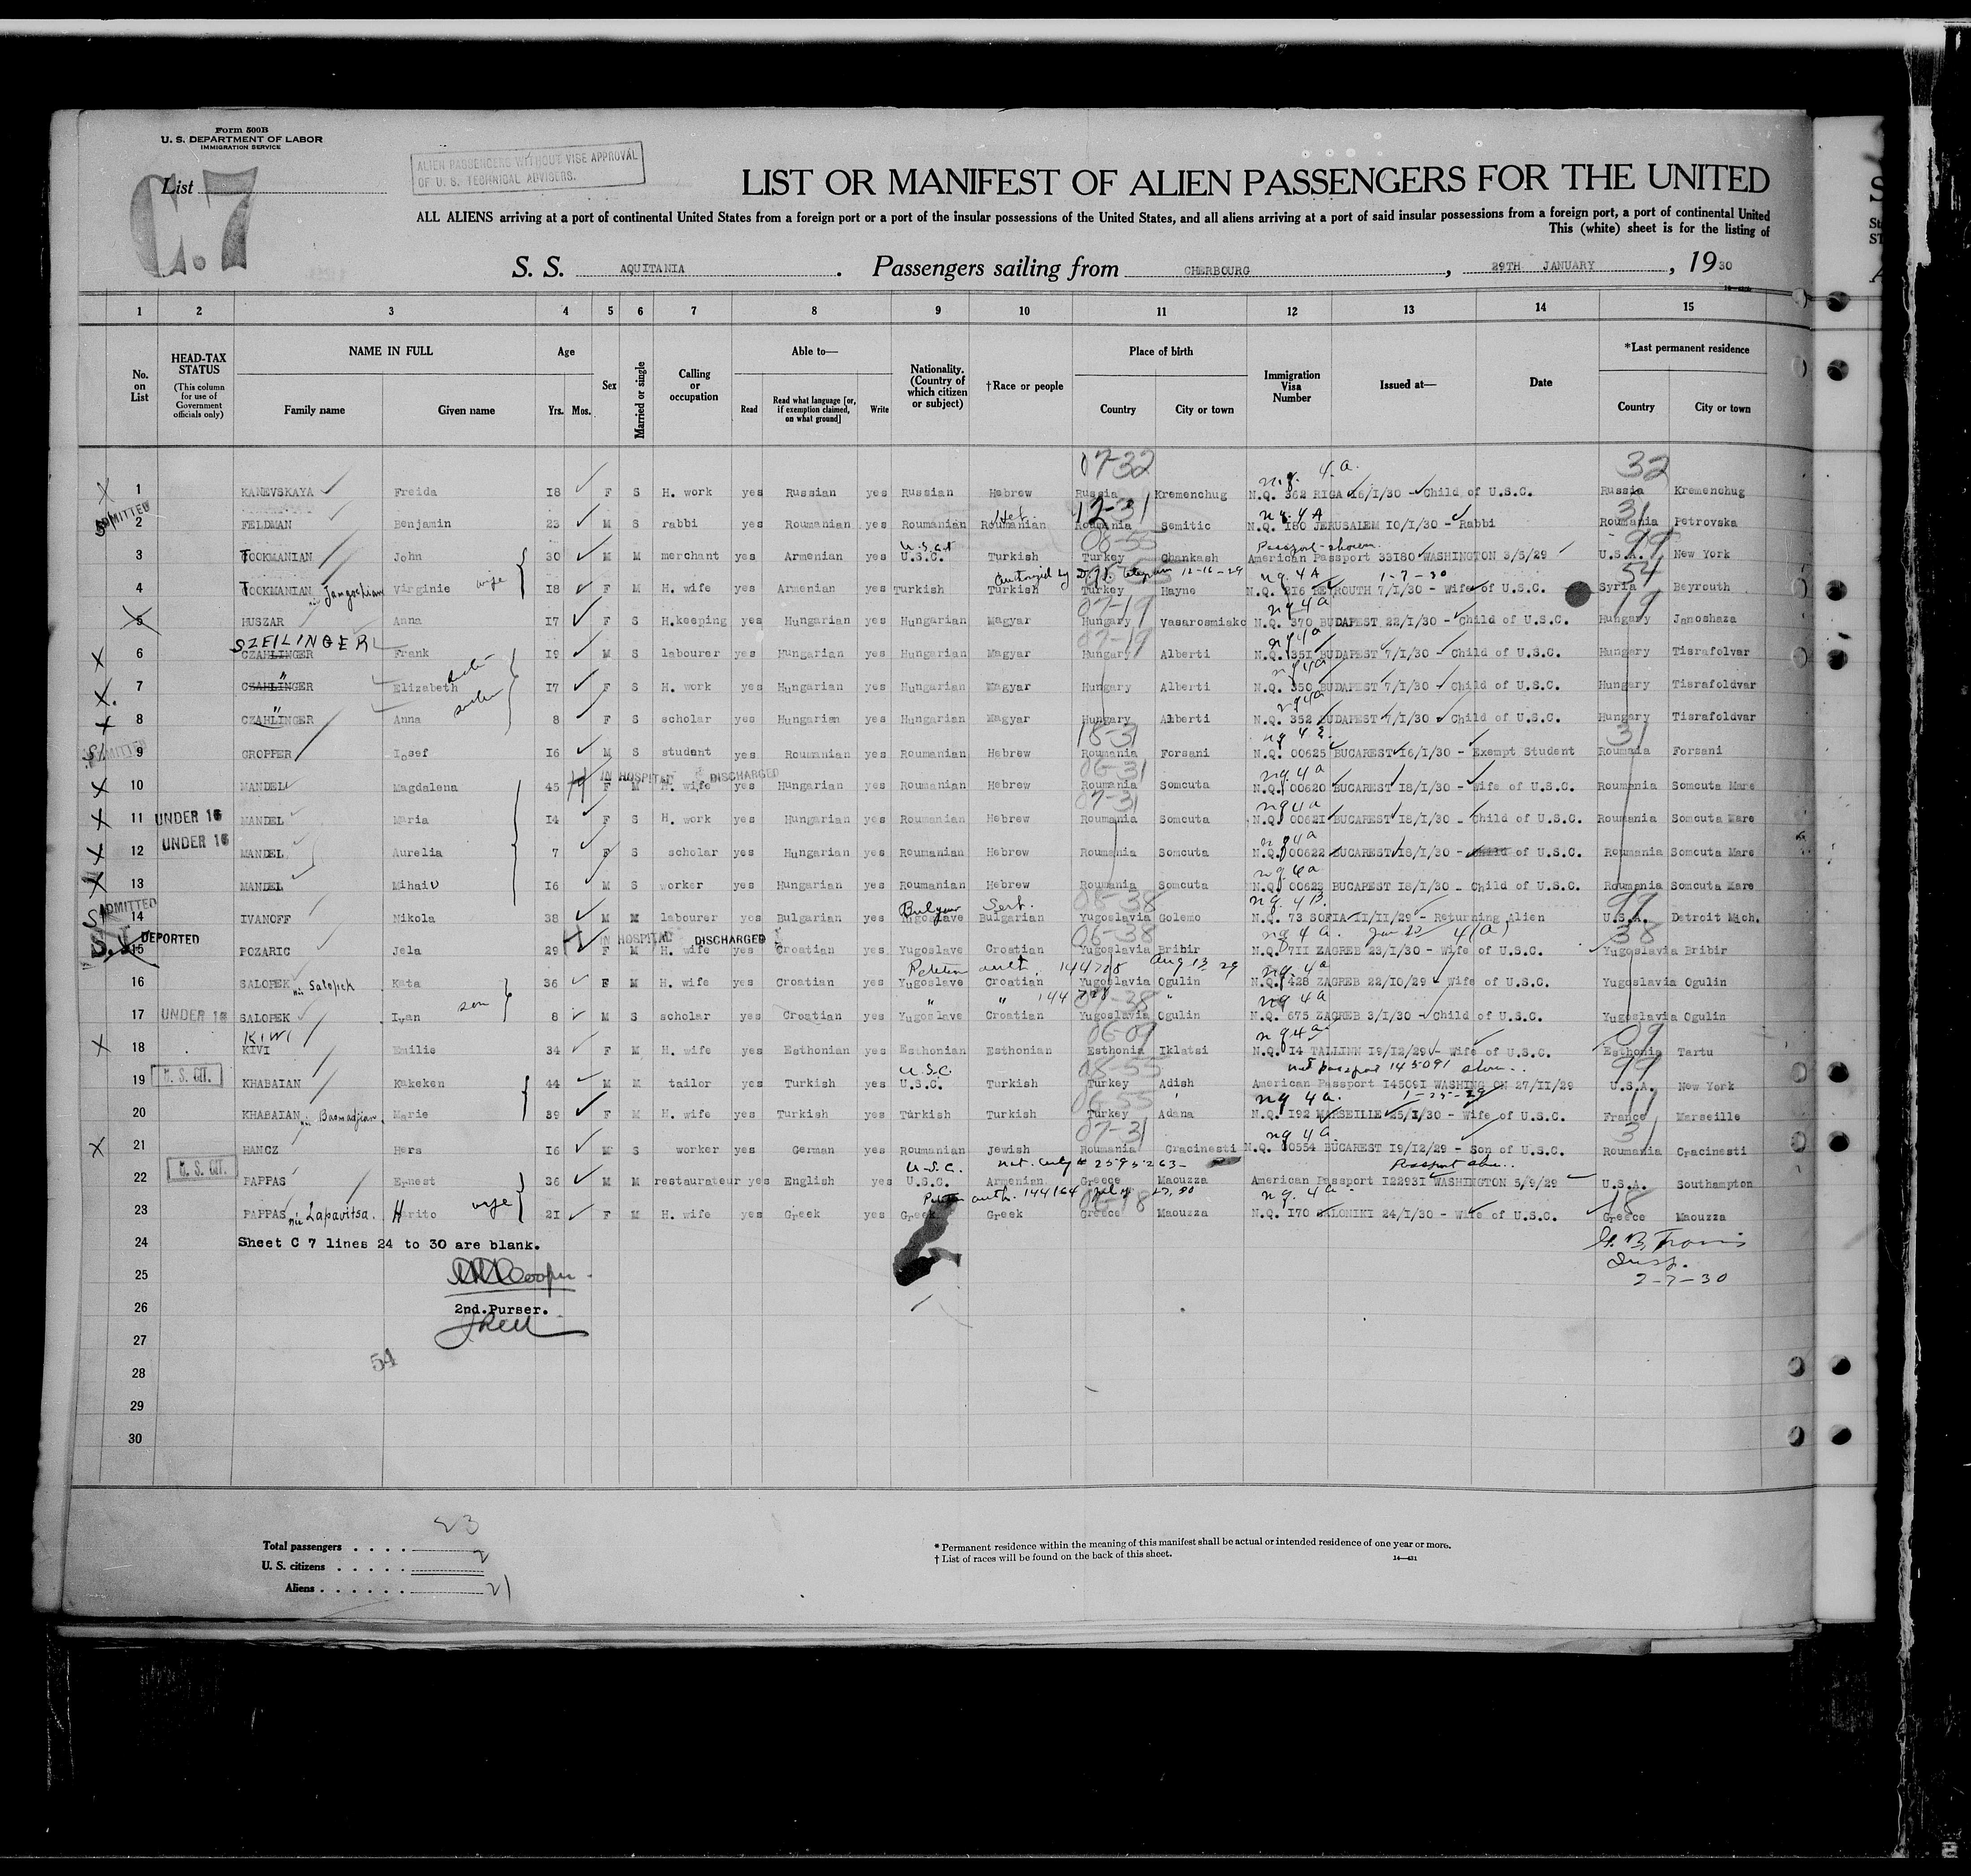 Form 500B
U. S. DEPARTMENT OF LABOR
IMMIGRATION SERVICE
List
C.7
ALIEN PASSENGERS WITHOUT VISE APPROVAL
OF U. S. TECHNICAL ADVISERS.
LIST OR MANIFEST OF ALIEN PASSENGERS FOR THE UNITED
ALL ALIENS arriving at a port of continental United States from a foreign port or a port of the insular possessions of the United States, and all aliens arriving at a port of said insular possessions from a foreign port, a port of continental United
This (white) sheet is for the listing of
S. S. AQUITANIA. Passengers sailing from CHERBOURG, 29TH JANUARY, 1930
1 2 3 4 5 6 7 8 9 10 11 12 13 14 15
No. on List
HEAD-TAX STATUS (This column for use of Government officials only)
NAME IN FULL Family name Given name
Age Yrs. Mos.
Sex
Married or single
Calling or occupation
Able to— Read Read what language [or, if exemption claimed, on what ground] Write
Nationality. (Country of which citizen or subject)
†Race or people
Place of birth Country City or town
Immigration Visa Number
Issued at—
Date
*Last permanent residence Country City or town
07-32 nq. 4a. 32
1 KANEVSKAYA Freida 18 F S H. work yes Russian yes Russian Hebrew Russia Kremenchug N.Q. 362 RIGA 16/1/30 - Child of U.S.C. Russia Kremenchug
ADMITTED Heb. 12-31 nq 4A 31
2 FELDMAN Benjamin 23 M S rabbi yes Roumanian yes Roumanian Roumanian Roumania Semitic N.Q. 180 JERUSALEM 10/1/30 - Rabbi Roumania Petrovska
U.S.Cit 08-55 Passport shown. 99
3 TOOKMANIAN John 30 M M merchant yes Armenian yes U.S.C. Turkish Turkey Chankash American Passport 33180 WASHINGTON 3/5/29 U.S.A. New York
Authorized by D.J. telegram 12-16-29 nq. 4A 1-7-30 54
4 TOOKMANIAN née Jangochian Virginie wife 18 F M H. wife yes Armenian yes Turkish Turkish Turkey Hayne N.Q. 216 BEYROUTH 7/1/30 - Wife of U.S.C. Syria Beyrouth
07-19 nq 4a 19
5 HUSZAR Anna 17 F S H.keeping yes Hungarian yes Hungarian Magyar Hungary Vasarosmiske N.Q. 370 BUDAPEST 22/1/30 - Child of U.S.C. Hungary Janoshaza
SZEILINGER 07-19 nq 4a
6 CZAHLINGER Frank 19 M S labourer yes Hungarian yes Hungarian Magyar Hungary Alberti N.Q. 351 BUDAPEST 7/1/30 - Child of U.S.C. Hungary Tisrafolvar
" sister nq 4a
7 CZAHLINGER Elizabeth 17 F S H. work yes Hungarian yes Hungarian Magyar Hungary Alberti N.Q. 350 BUDAPEST 7/1/30 - Child of U.S.C. Hungary Tisrafoldvar
" sister nq 4a
8 CZAHLINGER Anna 8 F S scholar yes Hungarian yes Hungarian Magyar Hungary Alberti N.Q. 352 BUDAPEST 7/1/30 - Child of U.S.C. Hungary Tisrafoldvar
ADMITTED 18-31 nq 4E. 31
9 GROPPER Iosef 16 M S student yes Roumanian yes Roumanian Hebrew Roumania Forsani N.Q. 00625 BUCAREST 16/1/30 - Exempt Student Roumania Forsani
IN HOSPITAL DISCHARGED 06-31 nq. 4a
10 MANDEL Magdalena 45 F M H. wife yes Hungarian yes Roumanian Hebrew Roumania Somcuta N.Q. 00620 BUCAREST 18/1/30 - Wife of U.S.C. Roumania Somcuta Mare
07-31 nq 4a
11 UNDER 16 MANDEL Maria 14 F S H. work yes Hungarian yes Roumanian Hebrew Roumania Somcuta N.Q. 00621 BUCAREST 18/1/30 - Child of U.S.C. Roumania Somcuta Mare
nq 4a
12 UNDER 16 MANDEL Aurelia 7 F S scholar yes Hungarian yes Roumanian Hebrew Roumania Somcuta N.Q. 00622 BUCAREST 18/1/30 - Child of U.S.C. Roumania Somcuta Mare
nq 4a
13 MANDEL Mihail 16 M S worker yes Hungarian yes Roumanian Hebrew Roumania Somcuta N.Q. 00623 BUCAREST 18/1/30 - Child of U.S.C. Roumania Somcuta Mare
ADMITTED Bulgar Serb. 08-38 nq. 4B. 99
14 IVANOFF Nikola 38 M M labourer yes Bulgarian yes Yugoslave Bulgarian Yugoslavia Golemo N.Q. 73 SOFIA 11/11/29 - Returning Alien U.S.A. Detroit Mich.
DEPORTED IN HOSPITAL DISCHARGED 06-38 nq 4a. Jan 23 4(a) 38
15 POZARIC Jela 29 F M H. wife yes Croatian yes Yugoslave Croatian Yugoslavia Bribir N.Q. 711 ZAGREB 23/1/30 - Wife of U.S.C. Yugoslavia Bribir
Petition auth. 144728 Aug 13 29 nq. 4a
16 SALOPEK née Salopek Kata 36 F M H. wife yes Croatian yes Yugoslave Croatian Yugoslavia Ogulin N.Q. 428 ZAGREB 22/10/29 - Wife of U.S.C. Yugoslavia Ogulin
" " 144728 07-38 " nq 4a
17 UNDER 16 SALOPEK Ivan son 8 M S scholar yes Croatian yes Yugoslave Croatian Yugoslavia Ogulin N.Q. 675 ZAGREB 3/1/30 - Child of U.S.C. Yugoslavia Ogulin
KIWI 06-09 nq 4a 09
18 KIVI Emilie 34 F M H. wife yes Esthonian yes Esthonian Esthonian Esthonia Iklatsi N.Q. 14 TALLINN 19/12/29 - Wife of U.S.C. Esthonia Tartu
U.S.C. 08-55 passport 145091 99
19 U. S. CIT. KHABAIAN Kakeken 44 M M tailor yes Turkish yes U.S.C. Turkish Turkey Adish American Passport 145091 WASHING ON 27/11/29 U.S.A. New York
06-55 nq 4a. 1-25-29 11
20 KHABAIAN née Basmadjian Marie 39 F M H. wife yes Turkish yes Turkish Turkish Turkey Adana N.Q. 192 MARSEILLE 25/1/30 - Wife of U.S.C. France Marseille
07-31 nq 4a 31
21 HANCZ Hers 16 M S worker yes German yes Roumanian Jewish Roumania Cracinesti N.Q. 00554 BUCAREST 19/12/29 - Son of U.S.C. Roumania Cracinesti
U.S.C. Passport
22 U. S. CIT. PAPPAS Ernest 36 M M restaurateur yes English yes U.S.C. Armenian Greece Maouzza American Passport 122931 WASHINGTON 5/9/29 U.S.A. Southampton
Petition auth. 144164 06-18 nq. 4a. 18
23 PAPPAS née Lapavitsa. Harito wife 21 F M H. wife yes Greek yes Greek Greek Greece Maouzza N.Q. 170 SALONIKI 24/1/30 - Wife of U.S.C. Greece Maouzza
24 Sheet C 7 lines 24 to 30 are blank.
25 Cooper Insp. 2-7-30
26 2nd.Purser.
27
54
28
29
30
Total passengers . . . . 23
U. S. citizens . . . . . 2
Aliens . . . . . . 21
* Permanent residence within the meaning of this manifest shall be actual or intended residence of one year or more.
† List of races will be found on the back of this sheet.
14—431